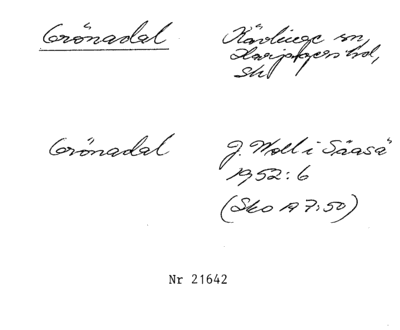 Grönadal Kävlinge sn,
Harjagers hd,
Sk
Grönadal J. Moll i Såasä
1952:6
(Sko A 7:50)
Nr 21642